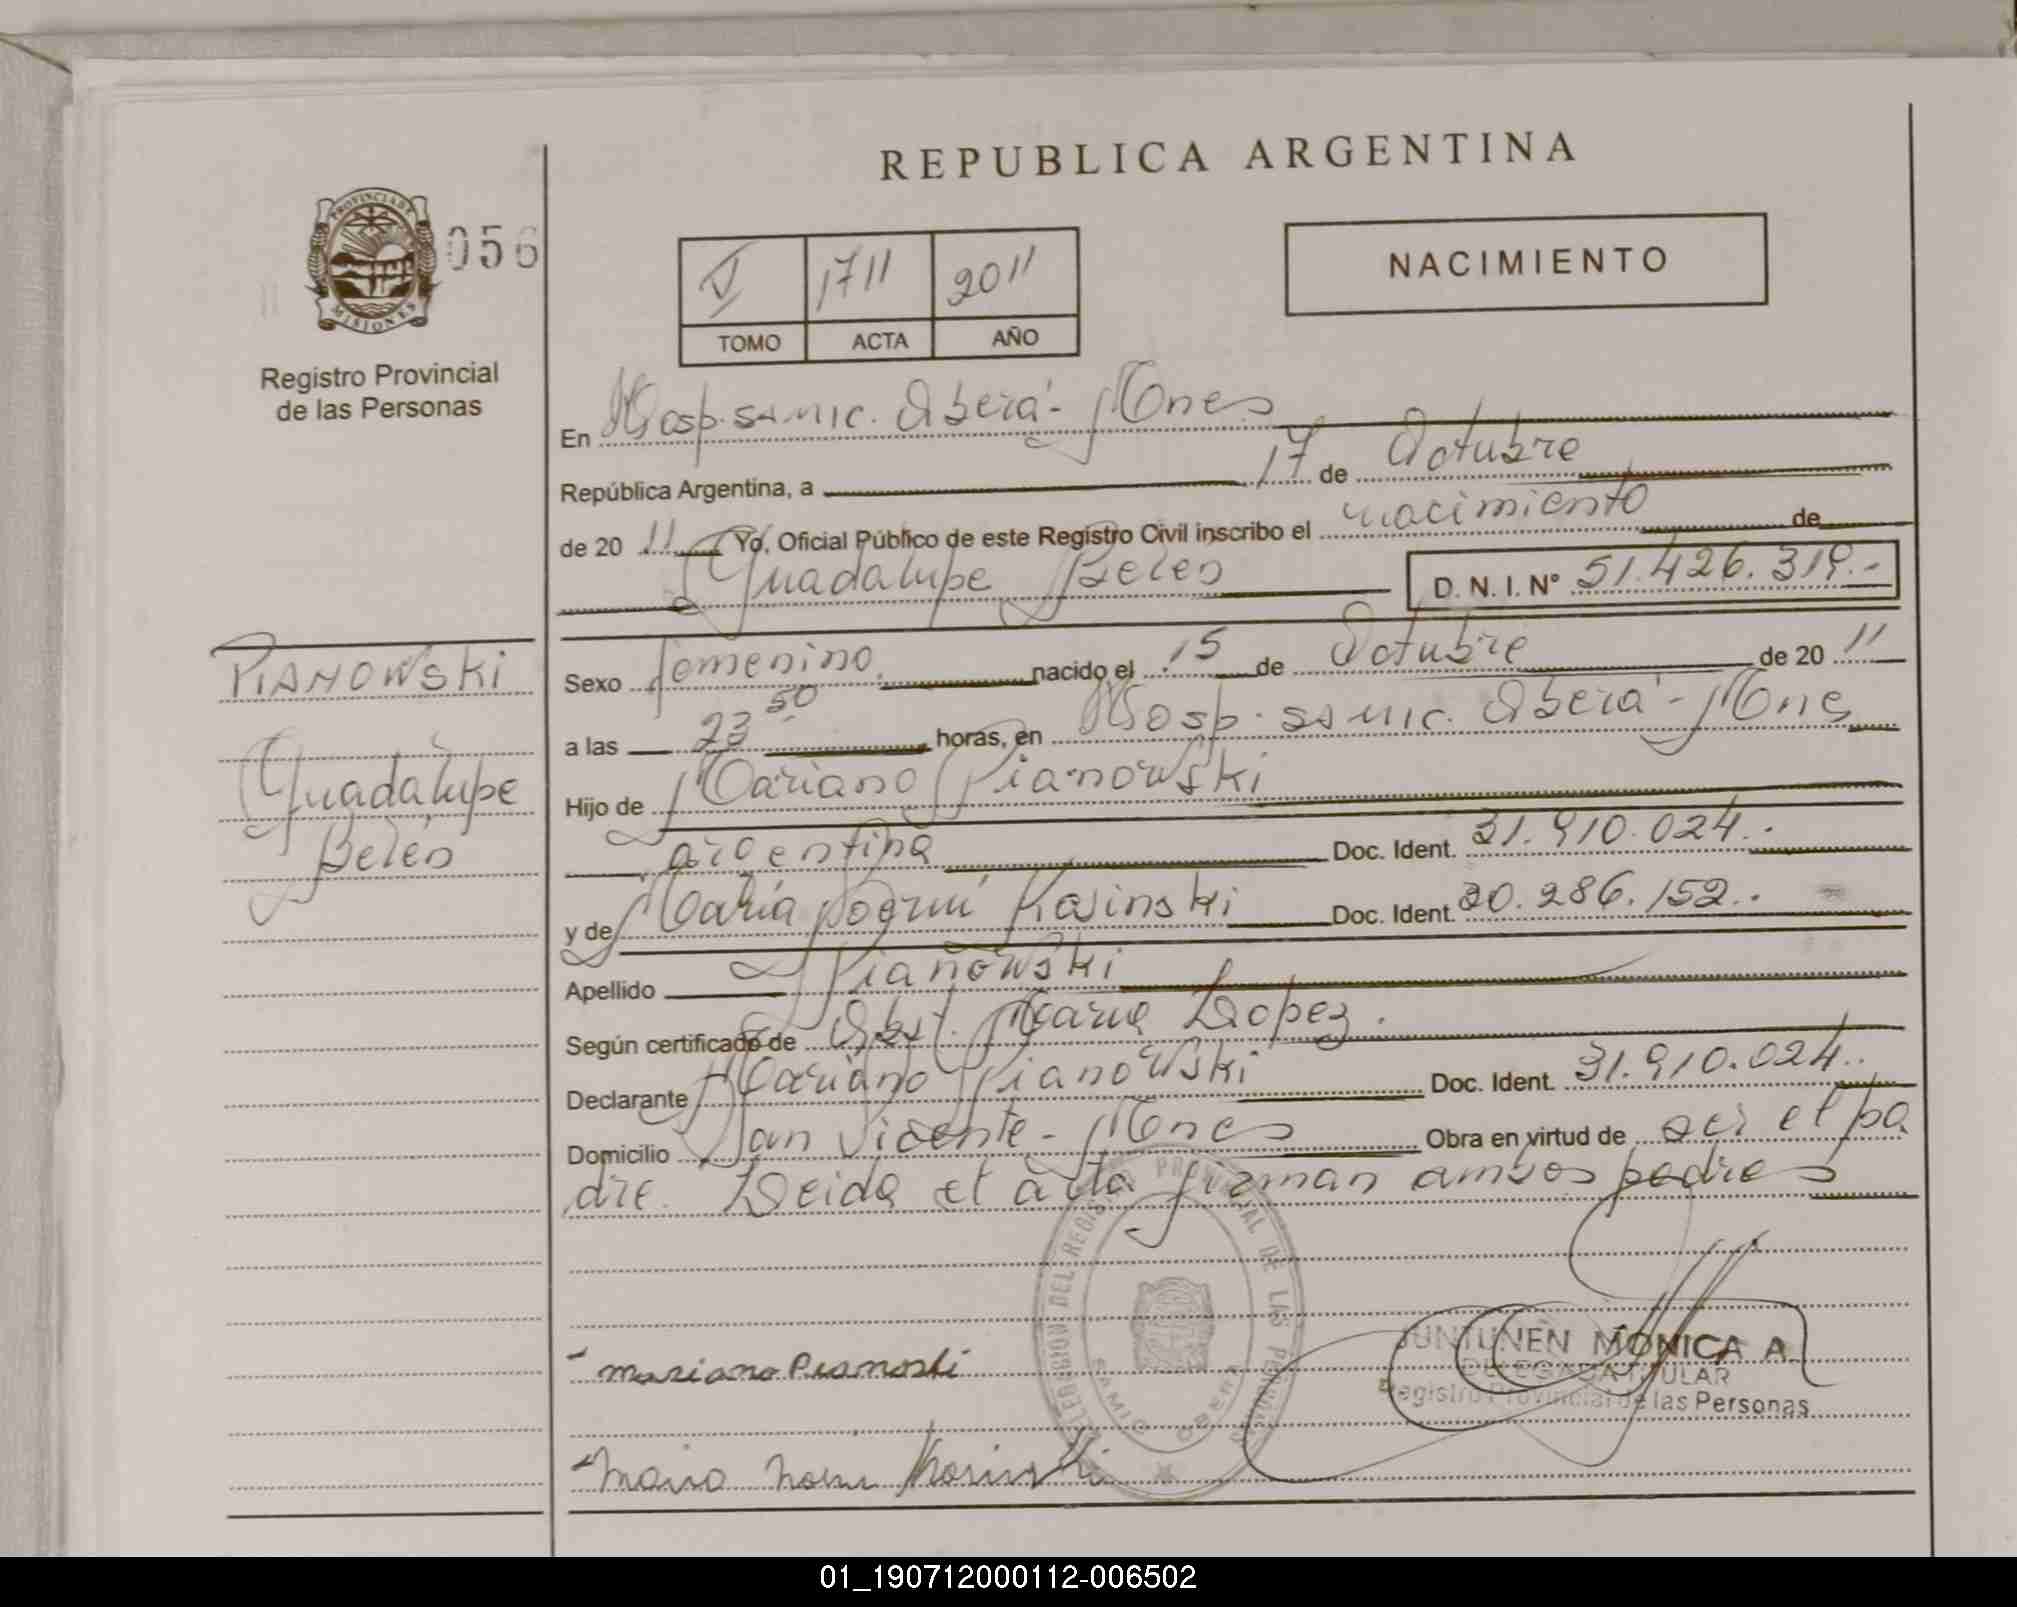 REPUBLICA ARGENTINA
PROVINCIA DE
MISIONES
056
Registro Provincial
de las Personas
1711 2011
TOMO ACTA AÑO
NACIMIENTO
En Hosp. samic. Oberá - Mnes
República Argentina, a 17 de Octubre
de 20 11 Yo, Oficial Público de este Registro Civil inscribo el nacimiento de
Guadalupe Belen D. N. I. Nº 51.426.319.-
PIANOWSKI
Guadalupe
Belén
Sexo femenino nacido el 15 de Octubre de 20 11
a las 23 50 horas, en Hosp. samic. Oberá - Mnes
Hijo de Mariano Pianowski
argentina Doc. Ident. 31.910.024.
y de María Noemí Kosinski Doc. Ident. 20.286.152.
Apellido Pianowski
Según certificado de Obst. María Lopez.
Declarante Mariano Pianowski Doc. Ident. 31.910.024.
Domicilio San Vicente - Mnes Obra en virtud de ser el pa
dre. Leida el acta firman ambos padres
DELEGACION DEL REGISTRO PROVINCIAL DE LAS PERSONAS
SAMIC OBERA
JUNTUNEN MONICA A
DELEGADA TITULAR
Registro Provincial de las Personas
Mariano Pianoski
Maria Noemi Kosinski
01_190712000112-006502